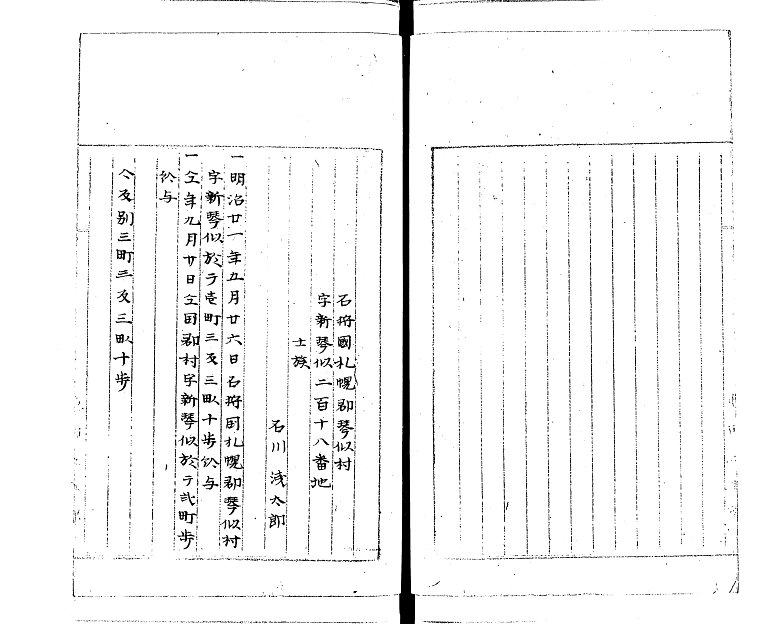 石狩國札幌郡琴似村
字新琴似二百十八番地
士族
石川淺太郎
一明治廿一年五月廿六日石狩国札幌郡琴似村
字新琴似於テ壱町三反三畝十歩給与
一仝年九月廿日仝国郡村字新琴似於テ弐町歩
給与
合反別三町三反三畝十歩